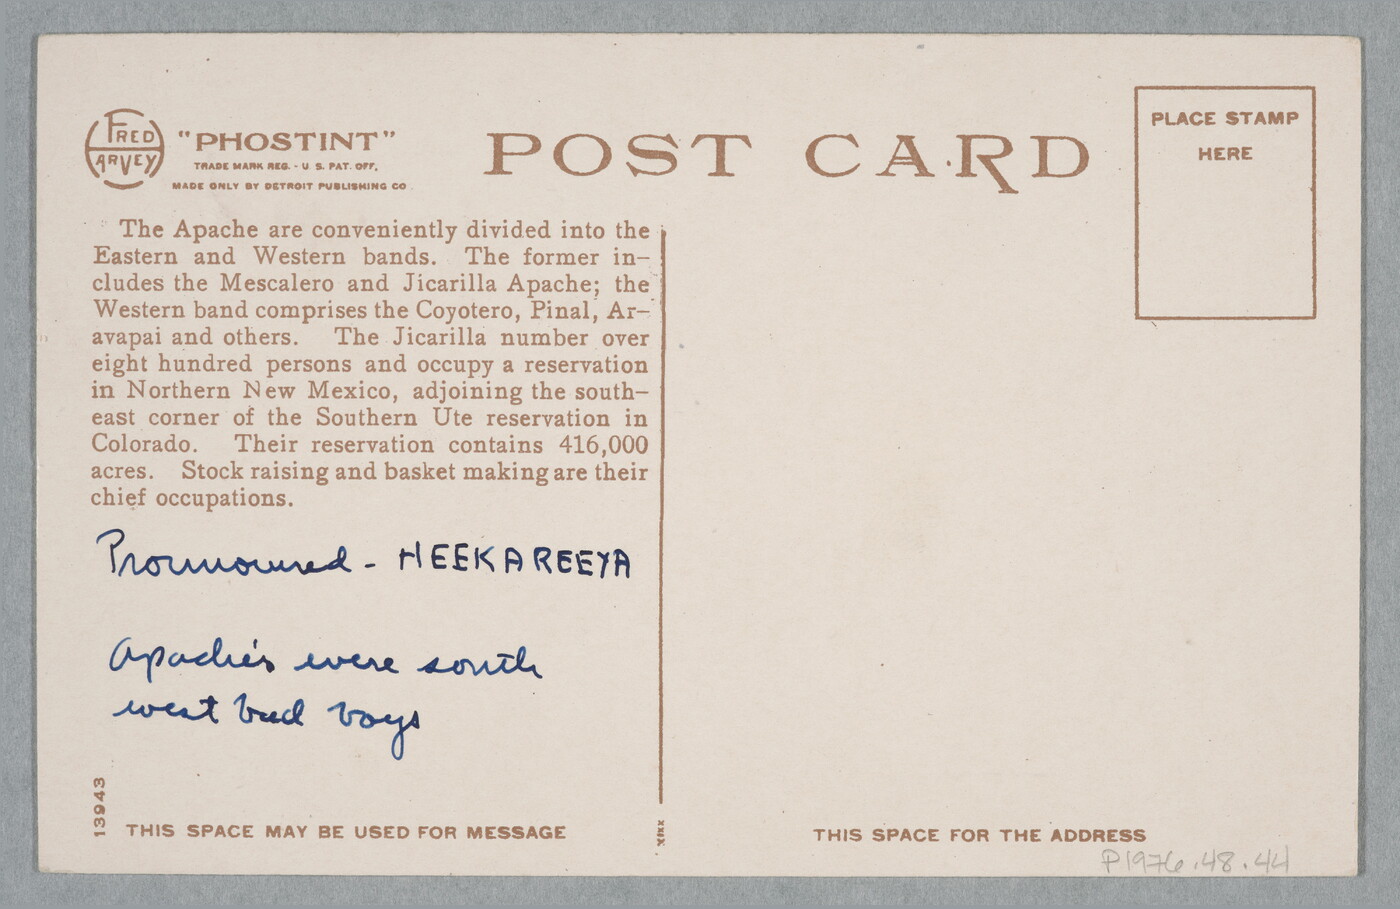 FRED
HARVEY
"PHOSTINT"
TRADE MARK REG. - U S. PAT. OFF.
MADE ONLY BY DETROIT PUBLISHING CO
POST CARD
PLACE STAMP
HERE
The Apache are conveniently divided into the
Eastern and Western bands. The former in-
cludes the Mescalero and Jicarilla Apache; the
Western band comprises the Coyotero, Pinal, Ar-
avapai and others. The Jicarilla number over
eight hundred persons and occupy a reservation
in Northern New Mexico, adjoining the south-
east corner of the Southern Ute reservation in
Colorado. Their reservation contains 416,000
acres. Stock raising and basket making are their
chief occupations.
Pronnounced - HEEKAREEYA
Apachés were south
west bad boys
13943
THIS SPACE MAY BE USED FOR MESSAGE
THIS SPACE FOR THE ADDRESS
P1976.48.44